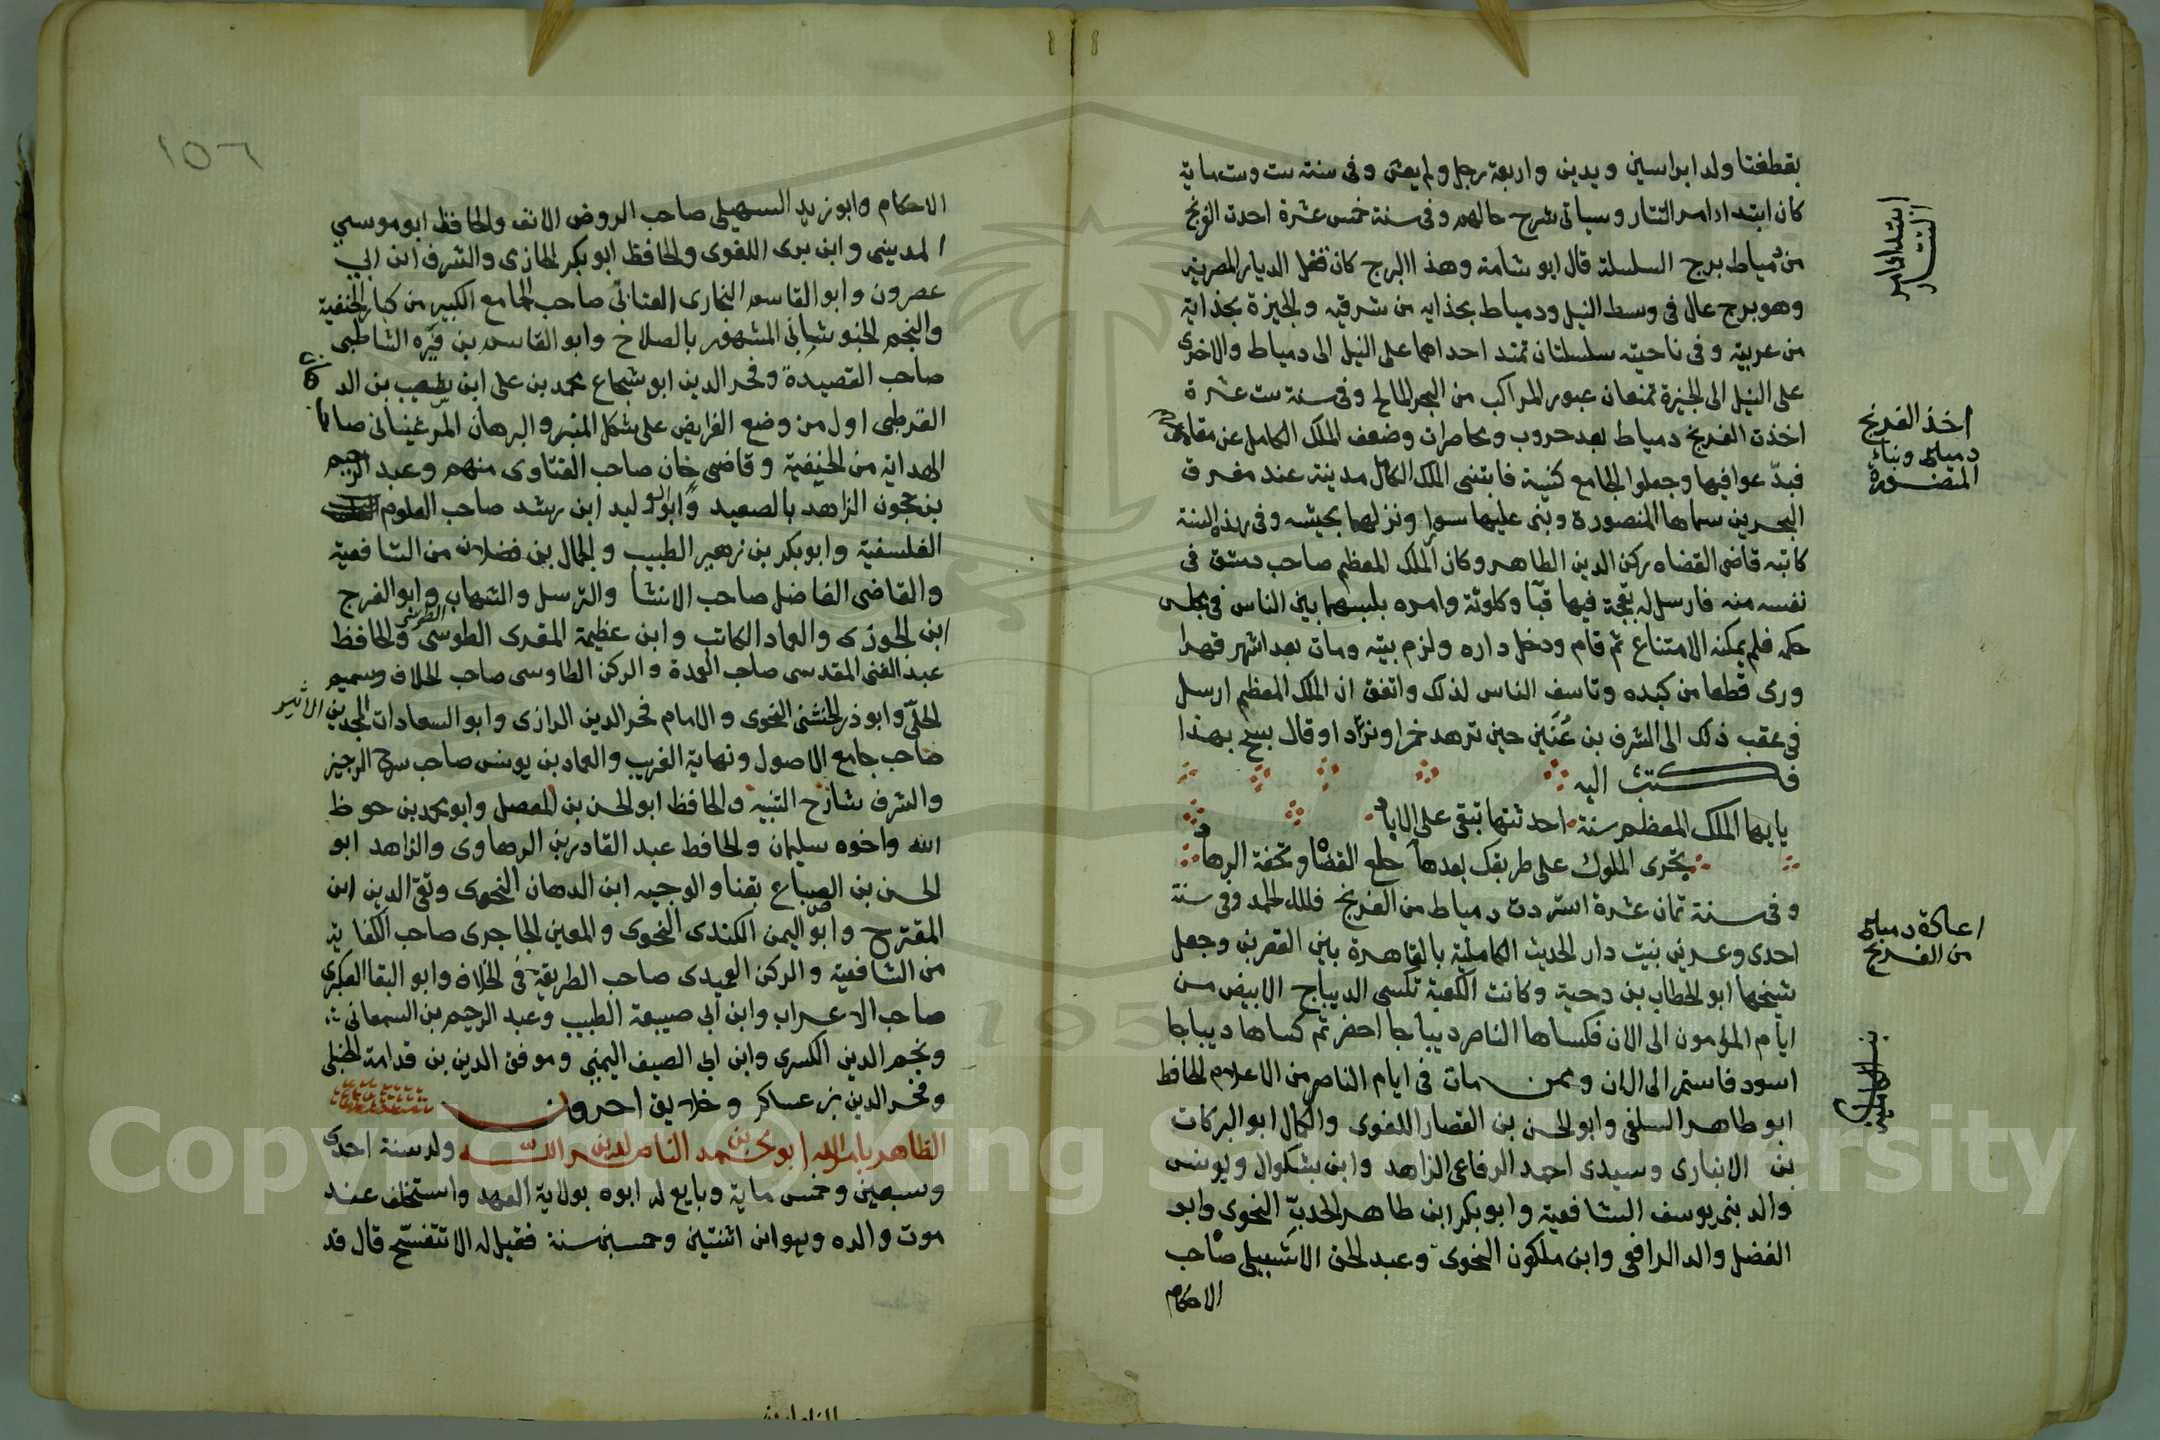 بقطفتا ولد ابراسين ويدين واربعة رجل ولم يعش وفى سنة ست وست ماية
كان ابتدا امر التتار وسياتى شرح حالهم وفى سنة خمس عشرة اخدت الفرنج
من دمياط برج السلسلة قال ابو شامة وهذا البرج كان قفل الديار المصرية
وهو برج عال فى وسط النيل ودمياط بحذايه من شرقيه والجيزة بحذاية
من غربية وفى ناحيته سلسلتان تمتد احداهما على النيل الى دمياط والاخرى
على النيل الى الجيزة تمنعان عبور المراكب من البحر المالح وفى سنة ست عشرة
اخذت الفرنج دمياط بعد حروب ومحاصرات وضعف الملك الكامل عن مقاومتهم
فبدّعوا فيها وجعلوا الجامع كنيسة فابتنى الملك الكامل مدينة عند مفرق
البحرين سماها المنصورة وبنى عليها سورا ونزلها بجيشه وفى هذه السنة
كاتبه قاضى القضاه ركن الدين الطاهر وكان الملك المعظم صاحب دمشق فى
نفسه منه فارسل له بقجة فيها قبا وكلوتة وامره بلبسهما بين الناس فى مجلس
حكمه فلم يمكنه الامتناع ثم قام ودخل داره ولزم بيته ومات بعد اشهر قهرا
ورمى قطعا من كبده وتاسف الناس لذلك واتفق ان الملك المعظم ارسل
فى عقب ذلك الى الشرف بن عُنَين حين تزهد خمرا ونردا وقال بسح بهذا
فكتب اليه
يايها الملك المعظم سنة احدثتها تبقى على الاباد
تجرى الملوك على طريقك بعدها خلع القضاة وتحفة الزهاد
وفى سنة ثمان عشرة استردت دمياط من الفرنج فلله الحمد وفى سنة
احدى وعشرين بنيت دار الحديث الكاملية بالقاهرة بين القصرين وجعل
شيخها ابو الخطاب بن دحية وكانت الكعبة تكسى الديباج الابيض من
ايام المامون الى الان فكساها الناصر ديباجا اخضر ثم كساها ديباجا
اسود فاستمر الى الان وممن مات فى ايام الناصر من الاعلام الحافظ
ابو طاهر السلفى وابو الحسن بن القصار اللغوى والكمال ابو البركات
بن الانبارى وسيدى احمد الرفاعى الزاهد وابن بشكوال ويونس
والد بنى يوسف الشافعية وابو بكر ابن طاهر الحدبّ النحوى وابو
الفضل والد الرافعى وابن ملكون النحوى وعبد الحق الاشبيلى صاحب
الاحكام
ابتدا امر
التتار
اخذ الفرنج
دمياط وبناء
المنصورة
اعادة دمياط
من الفرنج
بنا الكاملية
١٥٦
الاحكام وابو زيد السهيلى صاحب الروض الانف والحافظ ابو موسى
المدينى وابن برى اللغوى والحافظ ابو بكر الحازمى والشرف ابن ابى
عصرون وابو القاسم البخارى العتابى صاحب الجامع الكبير من كبار الحنفية
والنجم الخبوشانى المشهور بالصلاح وابو القاسم بن فيّره الشاطبى
صاحب القصيدة وفخر الدين ابو شجاع محمد بن على ابن شعيب بن الد
القرطبى اول من وضع الفرايض على شكل المنبر والبرهان المرغينانى صاحب
الهداية من الحنيفية وقاضى خان صاحب الفتاوى منهم وعبد الرحيم
بن حجون الزاهد بالصعيد وابو الوليد ابن رشد صاحب العلوم
الفلسفية وابو بكر بن زهير الطبيب والجمال بن فضلان من الشافعية
والقاضى الفاضل صاحب الانشا والترسل والشهاب وابو الفرج
ابن الجوزى والعماد الكاتب وابن عظيمة المقرى الطوسى والحافظ
عبد الغنى المقدسى صاحب العمدة والركن الطاوسى صاحب الخلاف وسميم
الحلّى وابو ذر الخشنى النحوى والامام فخر الدين الرازى وابو السعادات المجد بن الاثير
صاحب جامع الاصول ونهاية الغريب والعماد بن يونس صاحب شرح الوجيز
والشرف شارح التنبيه والحافظ ابو الحسن بن المفضل وابو محمد بن حوط
الله واخوه سليمان والحافظ عبد القادر بن الرهاوى والزاهد ابو
الحسن بن الصباغ بقنا والوجيه ابن الدهان النحوى وتقى الدين ابن
المقترح وابو اليمن الكندى النحوى والمعين الجاجرى صاحب الكفاية
من الشافعية والركن العميدى صاحب الطريقة فى الخلاف وابو البقا العكبرى
صاحب الاعراب وابن ابى صيبعة الطبيب وعبد الرحيم بن السمعانى
ونجم الدين الكسرى وابن ابى الصيف اليمنى وموفق الدين بن قدامة الحنبلى
وفخر الدين بن عساكر وخلايق احرون
الظاهر بامر الله ابو محمد بن الناصر لدين الله ولد سنة احدى
وسبعين وخمس ماية وبايع له ابوه بولاية العهد واستخلف عند
موت والده وهو ابن اثنتين وخمسين سنة فقيل له الا تتفسّح قال قد
Copyright © King Saud University
1957